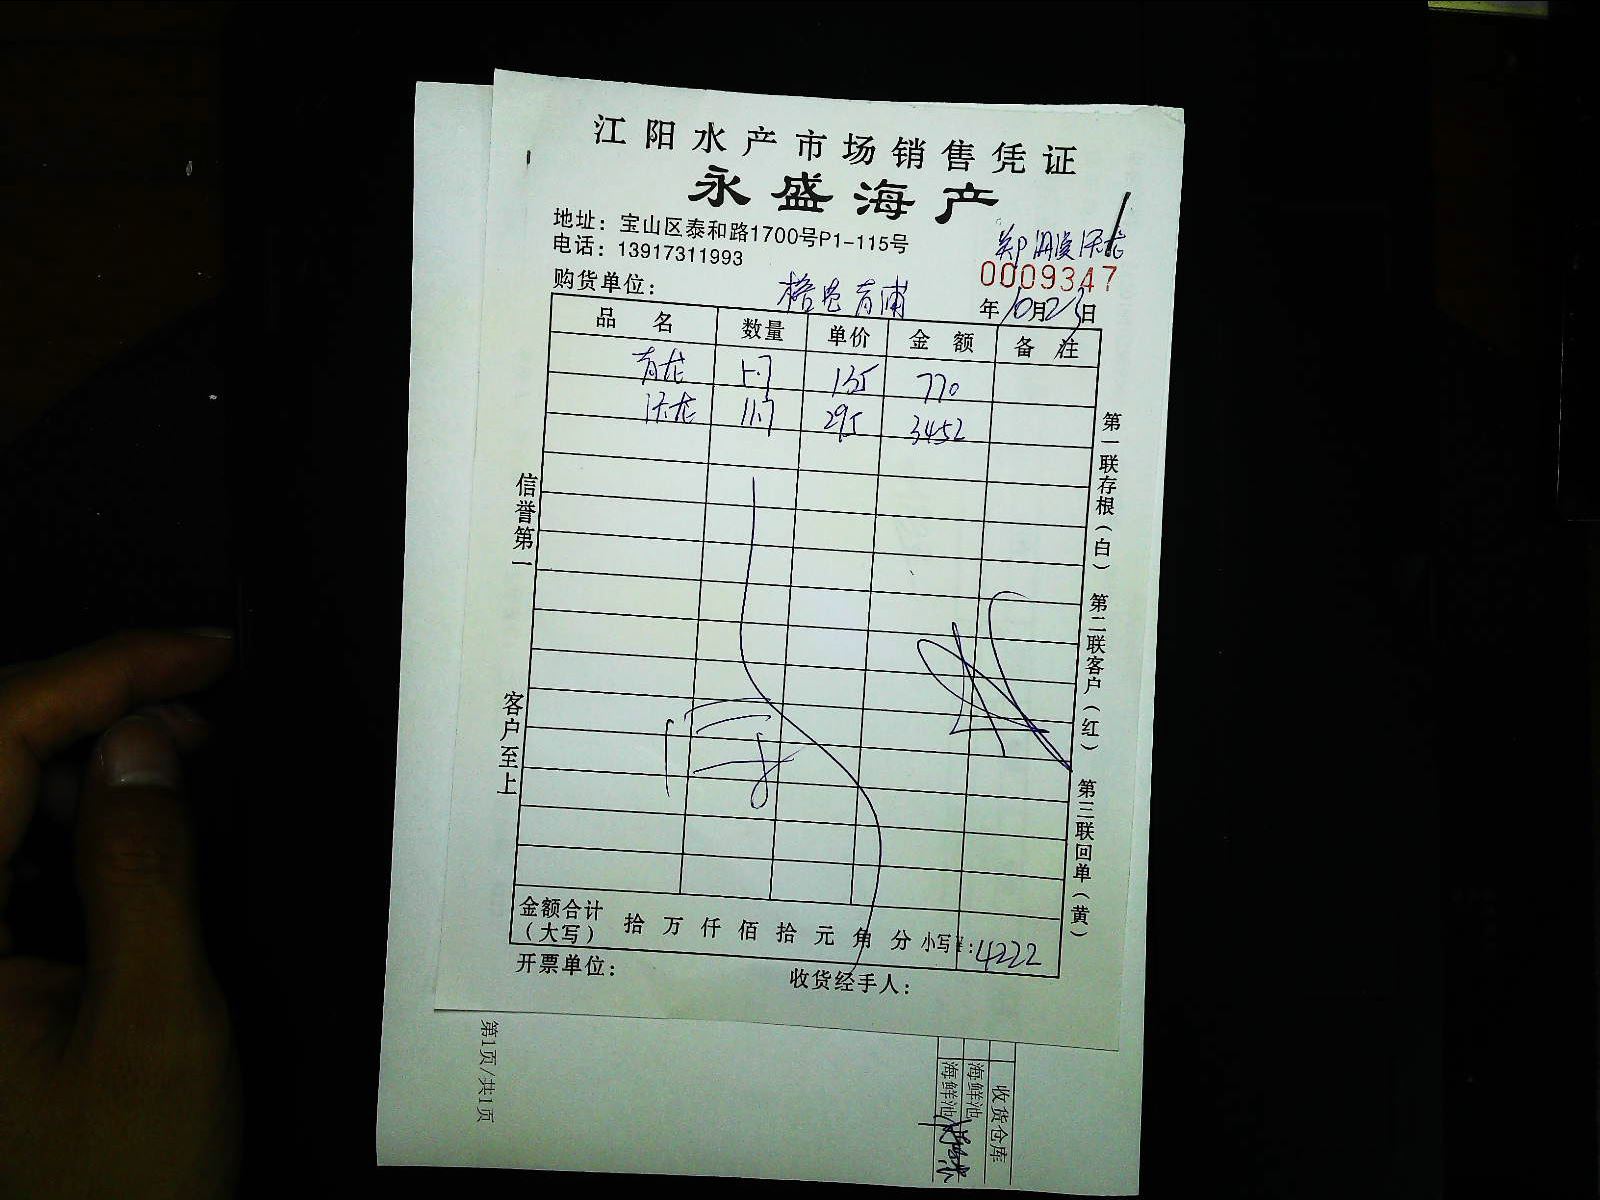 江阳水产市场销售凭证
永盛海产
地址：宝山区泰和路1700号P1-115号
电话：13917311993
0009347
购货单位： 青浦
年10月23日
品名 数量 单价 金额 备注
青龙 5.7 135 770
沃龙 11.7 295 3452
信誉第一
客户至上
第一联存根（白） 第二联客户（红） 第三联回单（黄）
金额合计（大写） 拾 万 仟 佰 拾 元 角 分 小写¥：4222
开票单位： 收货经手人：
第1页/共1页
收货仓库
海鲜池
海鲜池